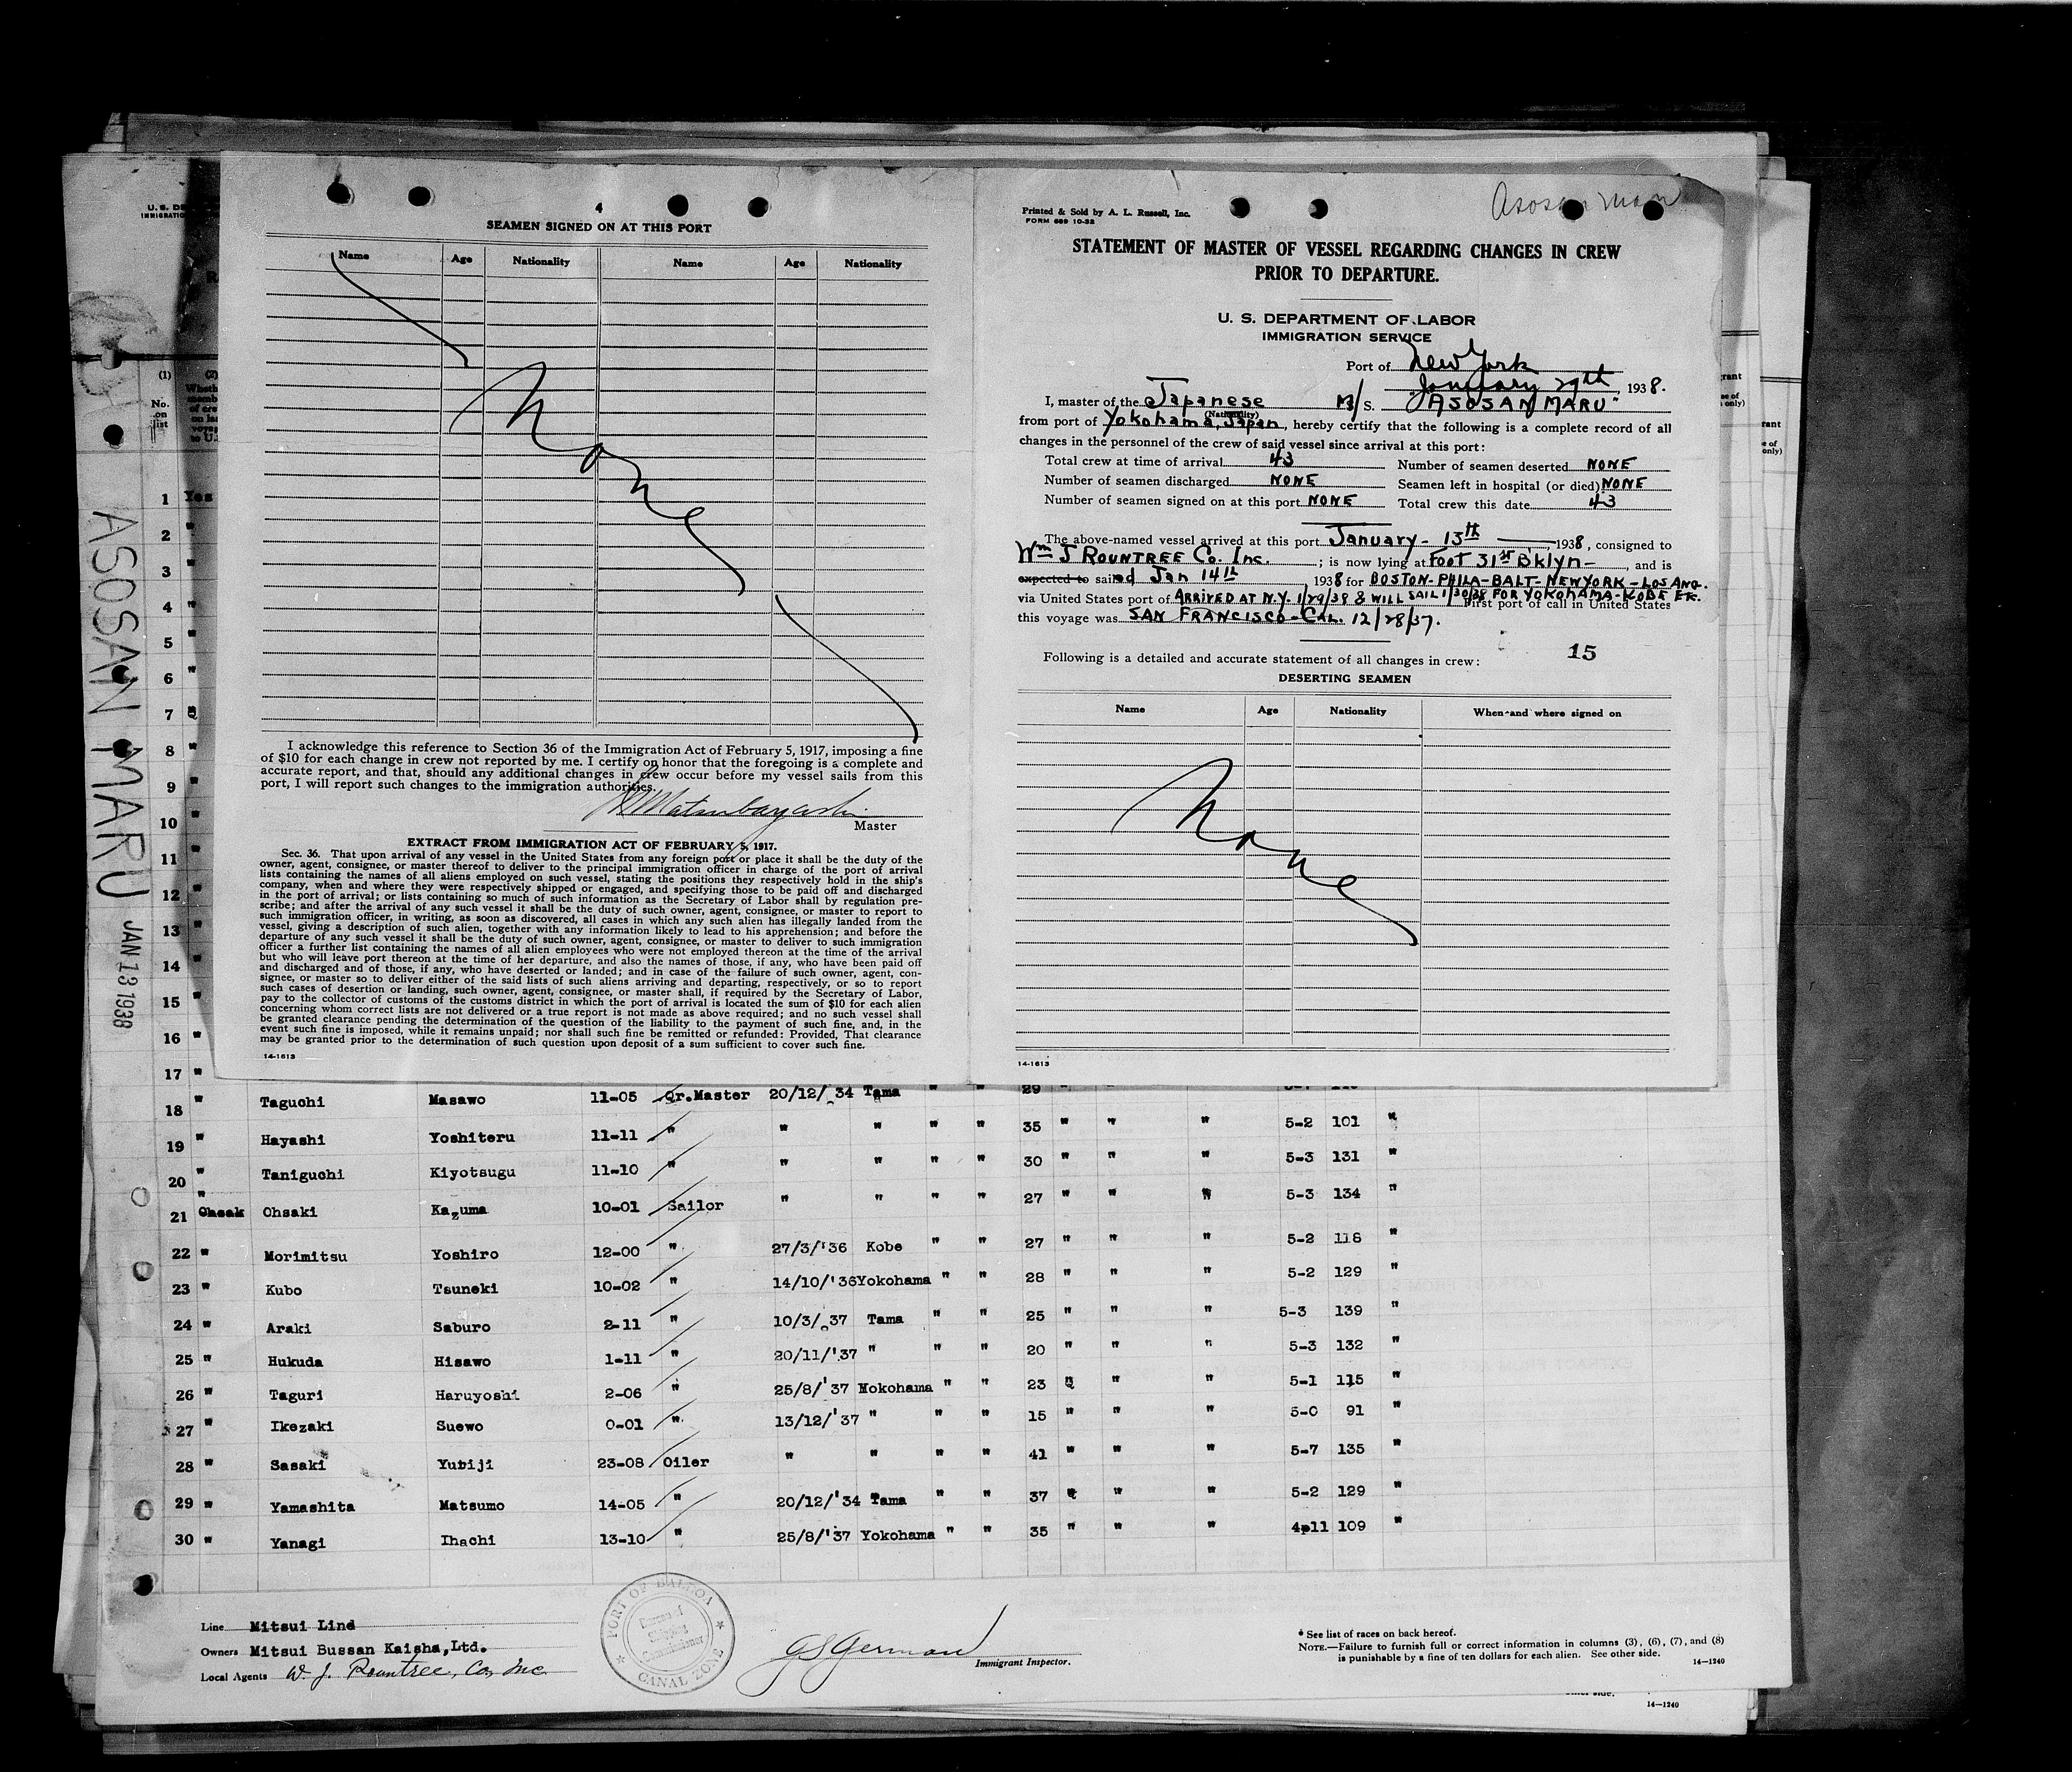 4
SEAMEN SIGNED ON AT THIS PORT
Name Age Nationality Name Age Nationality
None
I acknowledge this reference to Section 36 of the Immigration Act of February 5, 1917, imposing a fine
of $10 for each change in crew not reported by me. I certify on honor that the foregoing is a complete and
accurate report, and that, should any additional changes in crew occur before my vessel sails from this
port, I will report such changes to the immigration authorities.
Matsubayashi
Master
EXTRACT FROM IMMIGRATION ACT OF FEBRUARY 5, 1917.
Sec. 36. That upon arrival of any vessel in the United States from any foreign port or place it shall be the duty of the
owner, agent, consignee, or master thereof to deliver to the principal immigration officer in charge of the port of arrival
lists containing the names of all aliens employed on such vessel, stating the positions they respectively hold in the ship's
company, when and where they were respectively shipped or engaged, and specifying those to be paid off and discharged
in the port of arrival; or lists containing so much of such information as the Secretary of Labor shall by regulation pre-
scribe; and after the arrival of any such vessel it shall be the duty of such owner, agent, consignee, or master to report to
such immigration officer, in writing, as soon as discovered, all cases in which any such alien has illegally landed from the
vessel, giving a description of such alien, together with any information likely to lead to his apprehension; and before the
departure of any such vessel it shall be the duty of such owner, agent, consignee, or master to deliver to such immigration
officer a further list containing the names of all alien employees who were not employed thereon at the time of the arrival
but who will leave port thereon at the time of her departure, and also the names of those, if any, who have been paid off
and discharged and of those, if any, who have deserted or landed; and in case of the failure of such owner, agent, con-
signee, or master so to deliver either of the said lists of such aliens arriving and departing, respectively, or so to report
such cases of desertion or landing, such owner, agent, consignee, or master shall, if required by the Secretary of Labor,
pay to the collector of customs of the customs district in which the port of arrival is located the sum of $10 for each alien
concerning whom correct lists are not delivered or a true report is not made as above required; and no such vessel shall
be granted clearance pending the determination of the question of the liability to the payment of such fine, and, in the
event such fine is imposed, while it remains unpaid; nor shall such fine be remitted or refunded: Provided, That clearance
may be granted prior to the determination of such question upon deposit of a sum sufficient to cover such fine.
14-1613
Asosan Maru
Printed & Sold by A. L. Russell, Inc.
FORM 689 10-32
STATEMENT OF MASTER OF VESSEL REGARDING CHANGES IN CREW
PRIOR TO DEPARTURE.
U. S. DEPARTMENT OF LABOR
IMMIGRATION SERVICE
Port of New York
January 29th, 1938.
I, master of the Japanese M/S. "ASOSAN MARU"
(Nationality)
from port of Yokohama, Japan, hereby certify that the following is a complete record of all
changes in the personnel of the crew of said vessel since arrival at this port:
Total crew at time of arrival 43 Number of seamen deserted NONE
Number of seamen discharged NONE Seamen left in hospital (or died) NONE
Number of seamen signed on at this port NONE Total crew this date 43
The above-named vessel arrived at this port January - 13th 1938, consigned to
Wm J ROUNTREE Co. Inc. ; is now lying at FOOT 31st B'klyn - , and is
expected to sailed Jan 14th, 1938 for BOSTON-PHILA-BALT-NEWYORK-LOS ANG.
via United States port of ARRIVED AT N.Y. 1/29/38 & WILL SAIL 1/30/38 FOR YOKOHAMA-KOBE ETC.
First port of call in United States
this voyage was SAN FRANCISCO-CAL. 12/28/37.
15
Following is a detailed and accurate statement of all changes in crew:
DESERTING SEAMEN
Name Age Nationality When and where signed on
None
14-1613
ASOSAN MARU JAN 13 1938
(1)
No. on list
1 Yes
2 "
3 "
4 "
5 "
6 "
7 "
8 "
9 "
10 "
11 "
12 "
13 "
14 "
15 "
16 "
17 "
18 " Taguchi Masawo 11-05 Qr.Master 20/12/'34 Tama " " 29
19 " Hayashi Yoshiteru 11-11 " " " " " 35 " " " 5-2 101 "
20 " Taniguchi Kiyotsugu 11-10 " " " " " 30 " " " 5-3 131 "
21 " Ohsaki Kazuma 10-01 Sailor " " " " 27 " " " 5-3 134 "
22 " Morimitsu Yoshiro 12-00 " 27/3/'36 Kobe " " 27 " " " 5-2 118 "
23 " Kubo Tsuneki 10-02 " 14/10/'36 Yokohama " " 28 " " " 5-2 129 "
24 " Araki Saburo 2-11 " 10/3/'37 Tama " " 25 " " " 5-3 139 "
25 " Hukuda Hisawo 1-11 " 20/11/'37 " " " 20 " " " 5-3 132 "
26 " Taguri Haruyoshi 2-06 " 25/8/'37 Hokohama " " 23 " " " 5-1 115 "
27 " Ikezaki Suewo 0-01 " 13/12/'37 " " " 15 " " " 5-0 91 "
28 " Sasaki Yubiji 23-08 Oiler " " " " 41 " " " 5-7 135 "
29 " Yamashita Matsumo 14-05 " 20/12/'34 Tama " " 37 " " " 5-2 129 "
30 " Yanagi Ihachi 13-10 " 25/8/'37 Yokohama " " 35 " " " 4-11 109 "
Line Mitsui Lind
Owners Mitsui Bussan Kaisha,Ltd.
Local Agents W. J. Rountree, Co, Inc
PORT OF BALBOA
Bureau of Shipping Commissioner
CANAL ZONE
GS German
Immigrant Inspector.
* See list of races on back hereof.
NOTE.—Failure to furnish full or correct information in columns (3), (6), (7), and (8)
is punishable by a fine of ten dollars for each alien. See other side.
14-1240
14-1240